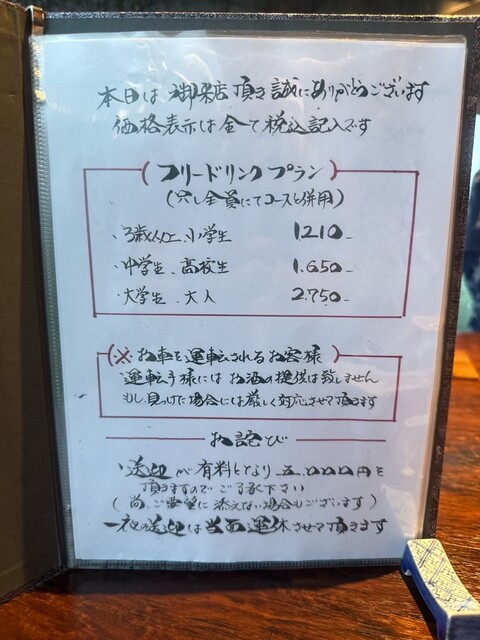 本日は御来店頂き誠にありがとうございます
価格表示は全て税込記入です
(フリードリンクプラン)
(只し全員にてコースと併用)
・3歳以上、小学生 1.210-
・中学生、高校生 1.650-
・大学生、大人 2.750-
(※お車を運転されるお客様)
運転手様にはお酒の提供は致しません
もし見つけた場合には厳しく対応させて頂きます
お詫び
・送迎が有料となり五.000円を
頂きますのでご了承下さい
(尚、ご要望に添えない場合もございます)
の送迎は当面運休させて頂きます